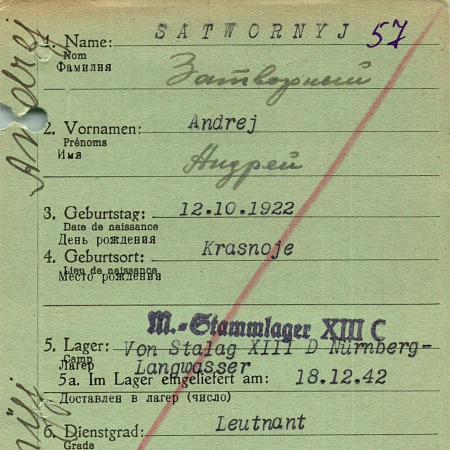 1. Name: SATWORNYJ 57
Nom
Фамилия Затворный
2. Vornamen: Andrej
Prénoms
Имя Андрей
3. Geburtstag: 12.10.1922
Date de naissance
День рождения
4. Geburtsort: Krasnoje
Lieu de naissance
Место рождения
M.-Stammlager XIII C
5. Lager: Von Stalag XIII D Nürnberg-
Camp
Лагерь Langwasser
5a. Im Lager eingeliefert am: 18.12.42
Доставлен в лагерь (число)
6. Dienstgrad: Leutnant
Grade
Andrej